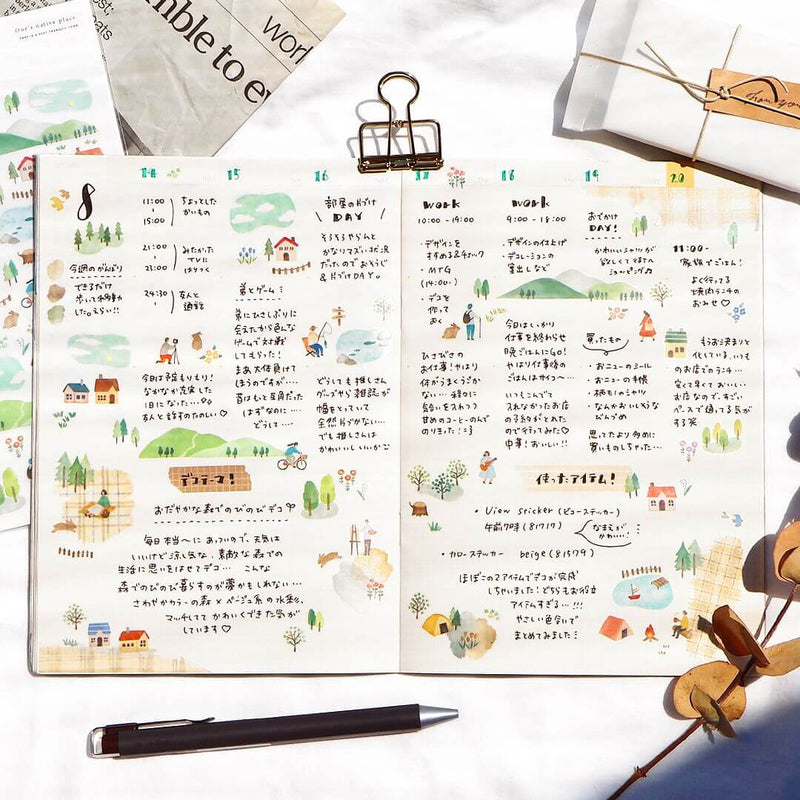 One's native place
mble to e
wor
thank you
8
14
11:00
15:00
ちょっとした
かいもの
21:00
23:00
みたかった
TVに
はりつく
24:30
友人と
通話
今週のがんばり
できるだけ
歩いて移動
した。えらい!!
今日は予定もりもり!
なかなか充実した
1日になった…
友人と話すのたのしい♡
15
弟とゲーム
弟にひさしぶりに
会えたから色んな
ゲームで対戦
してもらった!
まあ大体負けて
ほうのですが…
昔はもっと互角だった
はずなのに…
どうして…
16
部屋の片づけ
DAY
そろそろやらんと
かなりマズい状況
だったのでおそうじ
&片づけDAY。
どうしても推しさん
グッズやら雑誌が
幅をとっていて
全然片づかない…
でも推しさんは
かわいいしいいかな
デコテーマ!
おだやかな森でのびのびデコ
毎日本当〜にあついので、天気は
いいけど涼し気な、素敵な森での
生活に思いをはせてデコ… こんな
森でのびのび暮らすのが夢かもしれない…
さわやかカラーの森×ベージュ系の水彩、
マッチしててかわいくできた気が
しています♡
17
work
10:00 - 19:00
・デザインを
すすめる&チェック
・MTG
(14:00-)
・デコを
作って
おく
ひさびさの
お仕事!やはり
体がまくうごか
ない… 緑のに
気合いを入れつつ
甘めのコーヒーのんで
のりきった!
18
work
9:00 - 18:00
・デザインの仕上げ
・デコレーションの
案出しなど
今日はしっかり
仕事を終わらせ
晩ごはんにGO!
やはり仕事後の
ごはんはサイコ〜
いつもこんでて
入れなかったお店
の予約がとれた
ので行ってみた♡
中華!おいしい!!
19
おでかけ
DAY!
かわいいシャツが
欲しくてまたまた
ショッピング♪
買ったもの
・おニューのミール
・おニューの手帳
・柄モノのシャツ
・なんかおいしそうな
ぴんつめ
思ってたより多めに
買いものしちゃった…
20
11:00-
家族でごはん!
よく行ってる
焼肉ランチの
お店♡
もうお決まりと
化している、いつも
のお店でのランチ…
安くて早くておいしい
お店なので、すごい
ペースで通ってる気が
する笑
使ったアイテム!
・View sticker (ビューステッカー)
午前7時 (81717)
なまえが
かわいい!
・カラーステッカー beige (81579)
ほぼこの2アイテムでデコが完成
しちゃいました:どちらもお役立
アイテムすぎる…!!!
やさしい色合いで
まとめてみました